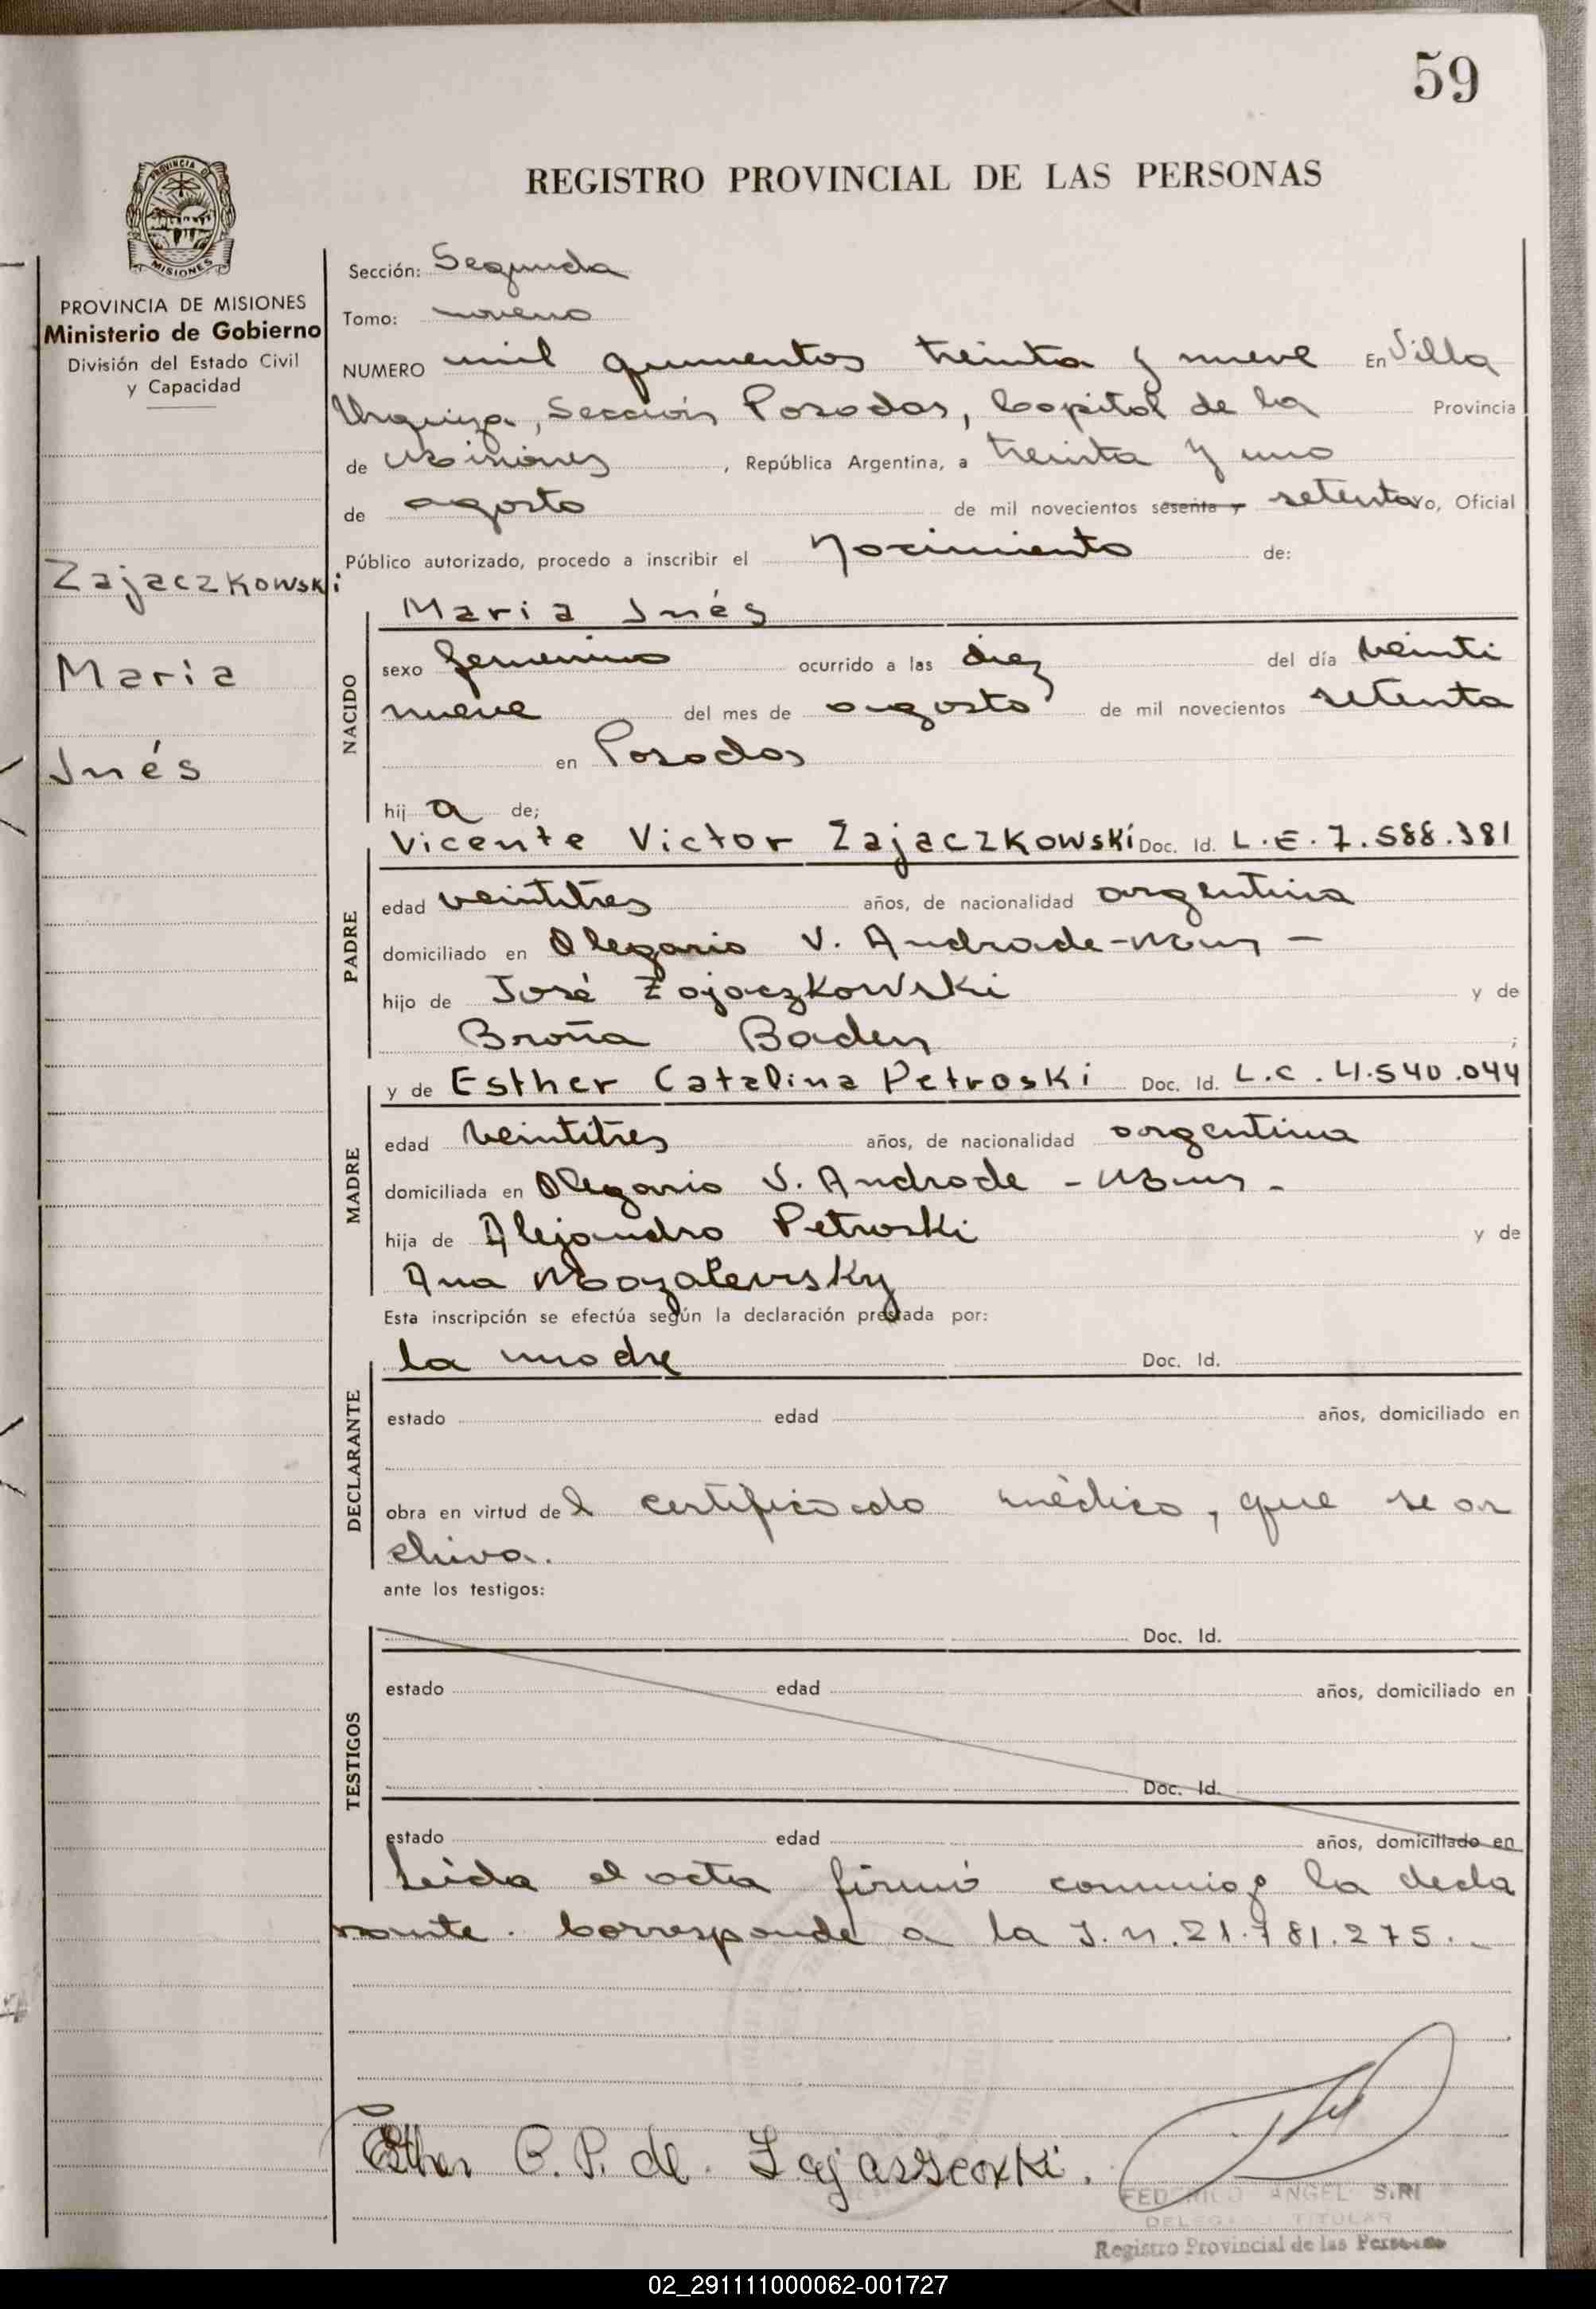 59
REGISTRO PROVINCIAL DE LAS PERSONAS
PROVINCIA
MISIONES
PROVINCIA DE MISIONES
Ministerio de Gobierno
División del Estado Civil
y Capacidad
Zajaczkowski
Maria
Inés
Sección: Segunda
Tomo: noveno
NUMERO mil quinientos treinta y nueve En Villa
Urquiza, Sección Posadas, Capital de la Provincia
de Misiones, República Argentina, a treinta y uno
de agosto de mil novecientos sesenta y setenta yo, Oficial
Público autorizado, procedo a inscribir el Nacimiento de:
NACIDO
Maria Inés
sexo femenino ocurrido a las diez del día veinti
nueve del mes de agosto de mil novecientos setenta
en Posadas
hij a de;
PADRE
Vicente Victor Zajaczkowski Doc. Id. L.E. 7.588.381
edad veintitres años, de nacionalidad argentina
domiciliado en Olegario V. Andrade-Mnes -
hijo de José Zajaczkowski y de
Broña Baden ;
MADRE
y de Esther Catalina Petroski Doc. Id. L.C. 4.540.044
edad veintitres años, de nacionalidad argentina
domiciliada en Olegario V. Andrade - Mnes -
hija de Alejandro Petroski y de
Ana Mazalevsky
Esta inscripción se efectúa según la declaración prestada por:
DECLARANTE
La madre Doc. Id.
estado edad años, domiciliado en
obra en virtud del certificado médico, que se ar
chiva.
ante los testigos:
TESTIGOS
Doc. Id.
estado edad años, domiciliado en
Doc. Id.
estado edad años, domiciliado en
Leida el acta firmó conmigo la decla
rante. Corresponde a la I.n. 21.781.275.-
Esther C. P. de
FEDERICO ANGEL
DELEGADO TITULAR
Registro Provincial de las Personas
02_291111000062-001727